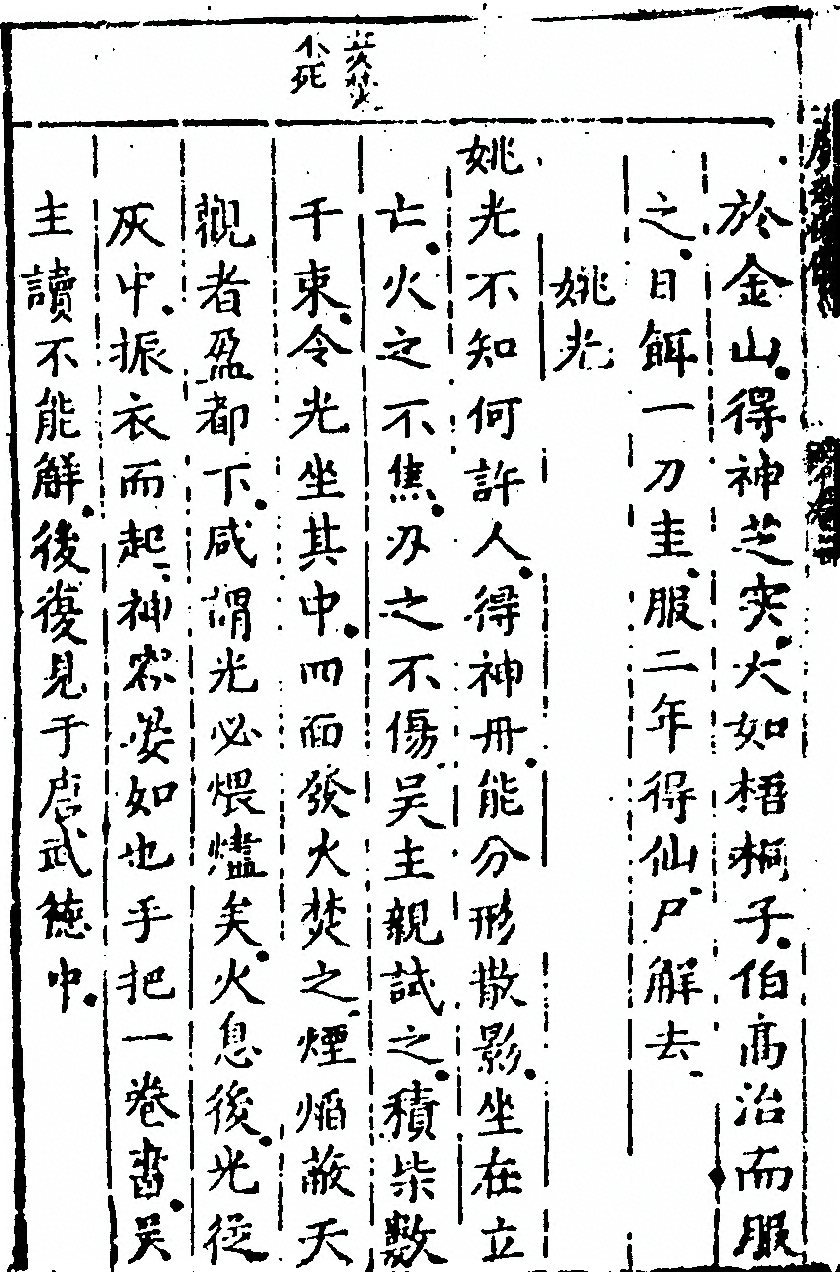 於金山得神芝实大如梧桐子伯高治而服
之日餌一刀圭服二年得仙尸解去
姚光
姚光不知何許人得神丹能分形散影坐在立
亡火之不焦刃之不傷吳主親試之積柴數
千束令光坐其中四面發火焚之煙焰蔽天
觀者盈都下咸謂光必煨燼矣火息後光從
灰中振衣而起神容晏如也手把一卷書吳
主讀不能解後復見于唐武德中
焚
不死